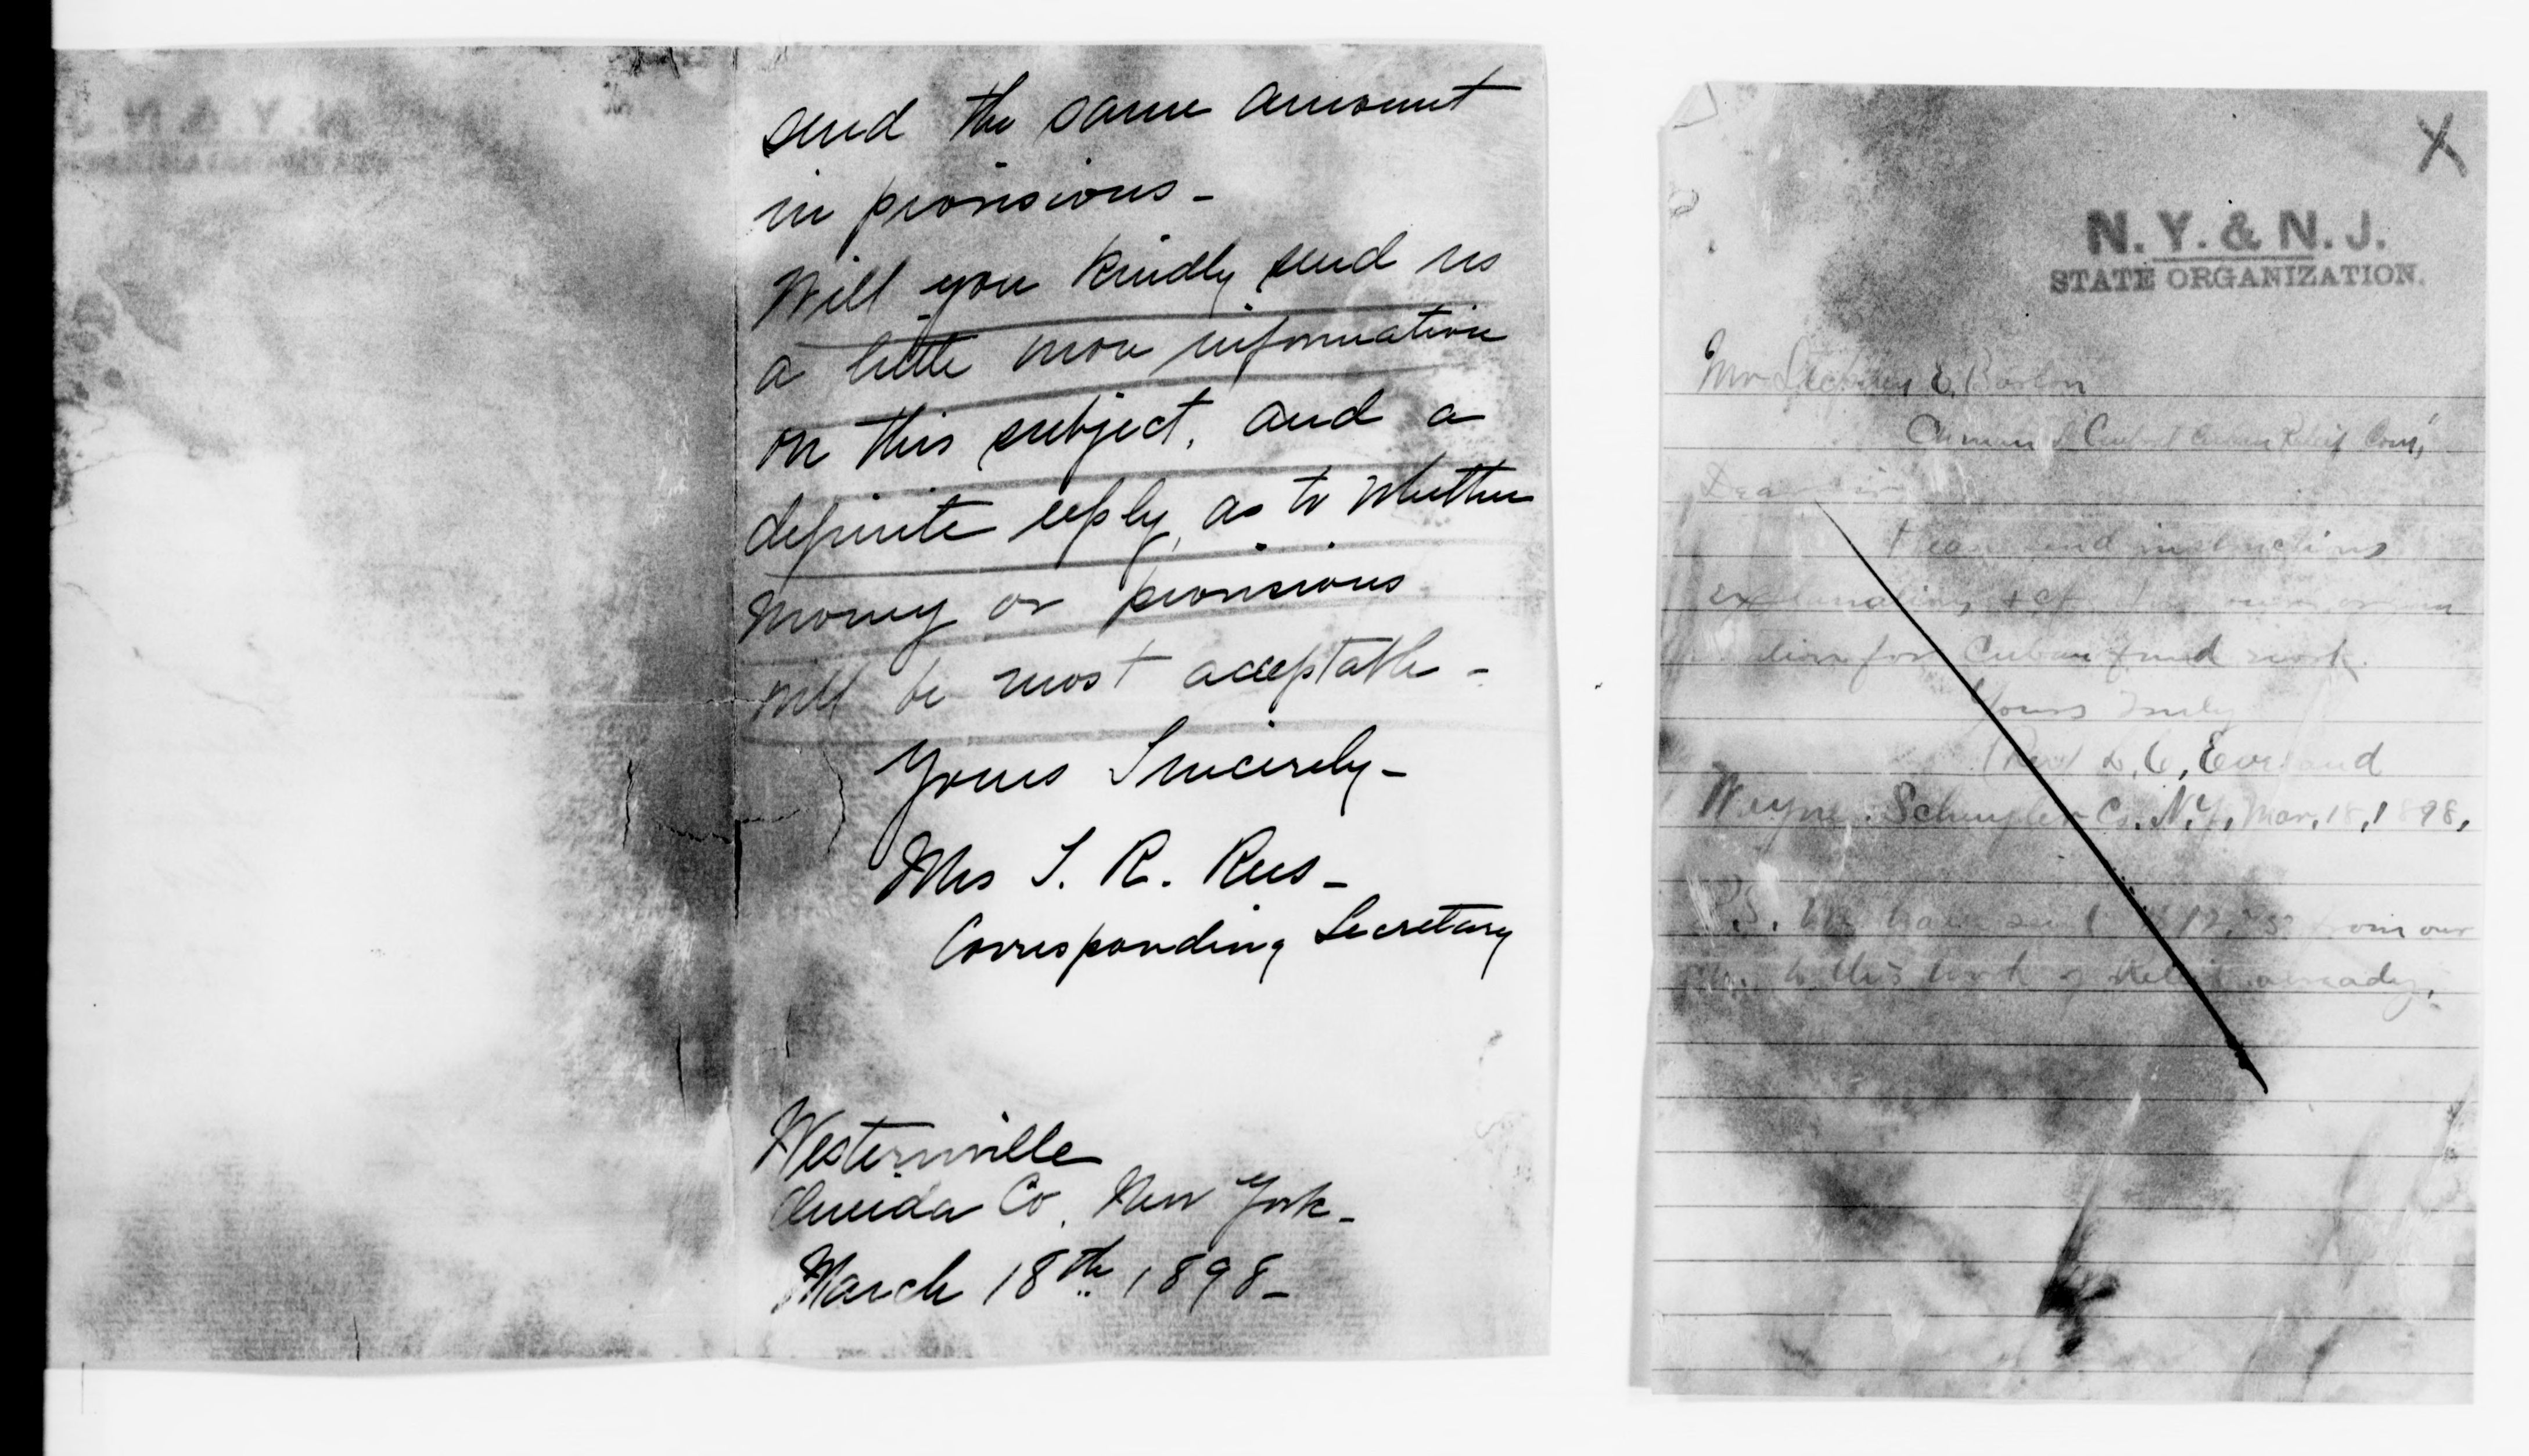 send the same amount
in provisions -
Will you kindly send us
a little more information
on this subject, and a
definite reply, as to whether
money or provisions
will be most acceptable -
Yours Sincerely -
Mrs T. R. Rees -
Corresponding Secretary
Westernville
Oneida Co. New York -
March 18th 1898 -
X
N. Y. & N. J.
STATE ORGANIZATION.
Mr E. Barton
Central Cuban Relief Com,
Dear
send instructions
for Cuban fund work.
Yours Truly
Wayne, Schuyler Co. N.Y, Mar, 18, 1898,
P.S. We have from our
to this work of Relief already.